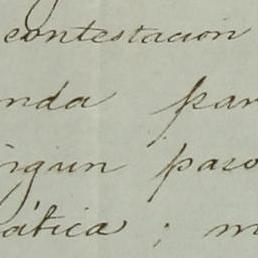 contestacion
nda par
ingun paso
ática; m